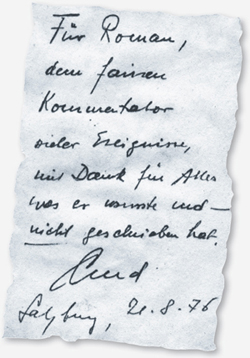 Für Roman,
dem fairen
Kommentator
vieler Ereignisse,
mit Dank für Alles
was er wusste und —
nicht geschrieben hat.
Salzburg, 21.8.76